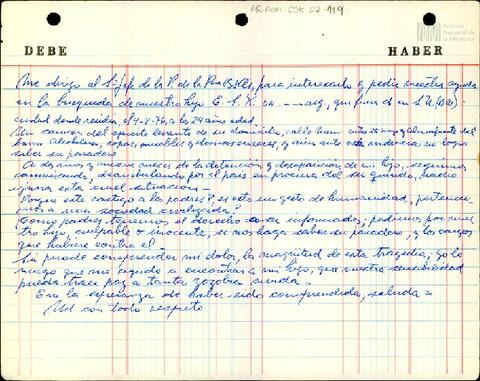 ARANM-CJK-02-119
Archivo
Nacional de
la Memoria
DEBE HABER
Me dirijo al Sr Jefe de la P. de la Pcia Bs As, para interesarlo y pedir vuestra ayuda
en la búsqueda de nuestro hijo E. S. K. arg, que
ciudad donde residía, el 9-8-76, a los 24 años edad.
Un camión del ejército levantó de su domicilio, calle
ropas, muebles y demás enseres, y aún ante esta evidencia no logro
saber su paradero.
A dos años y nueve meses de la detención y desaparición de mi hijo, seguimos
caminando, deambulando por el país en procura del ser querido, nadie
ignora esta cruel situación.
Porque este castigo a los padres? es esto un gesto de humanidad, pertenece-
mos a una sociedad civilizada?
Como padres tenemos el derecho a ser informados; pedimos por nues
tro hijo, culpable o inocente, se nos haga saber su paradero, y los cargos
que hubiere contra él.
Si puede comprender mi dolor, la magnitud de esta tragedia, yo le
ruego que me ayude a encontrar a mi hijo, que vuestra sensibilidad
pueda traer paz a tanta zozobra
En la esperanza de haber sido comprendida, saluda a
Ud con todo respeto